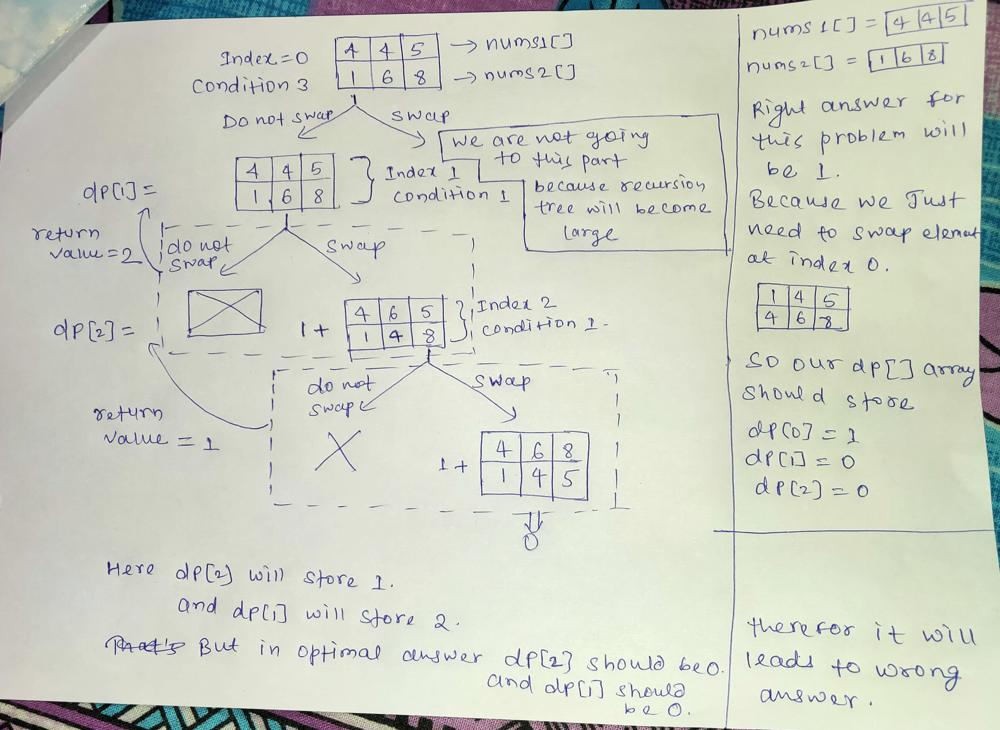 Index=0
Condition 3
4 4 5 → nums1[]
1 6 8 → nums2[]
Do not swap
swap
we are not going
to this part
because recursion
tree will become
large
dp[1]=
4 4 5
1 6 8
Index 1
condition 1
return
value=2
do not
swap
swap
dp[2]=
1+
4 6 5
1 4 8
Index 2
condition 1.
return
value = 1
do not
swap
swap
1+
4 6 8
1 4 5
0
Here dp[2] will store 1.
and dp[1] will store 2.
That's But in optimal answer dp[2] should be 0.
and dp[1] should
be 0.
nums1[] = 4 4 5
nums2[] = 1 6 8
Right answer for
this problem will
be 1.
Because we Just
need to swap element
at index 0.
1 4 5
4 6 8
So our dp[] array
should store
dp[0] = 1
dp[1] = 0
dp[2] = 0
therefor it will
leads to wrong
answer.